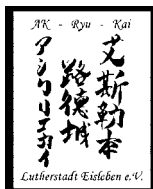 AK - Ryu - Kai
艾斯勒本
路德城
Lutherstadt Eisleben e.V.